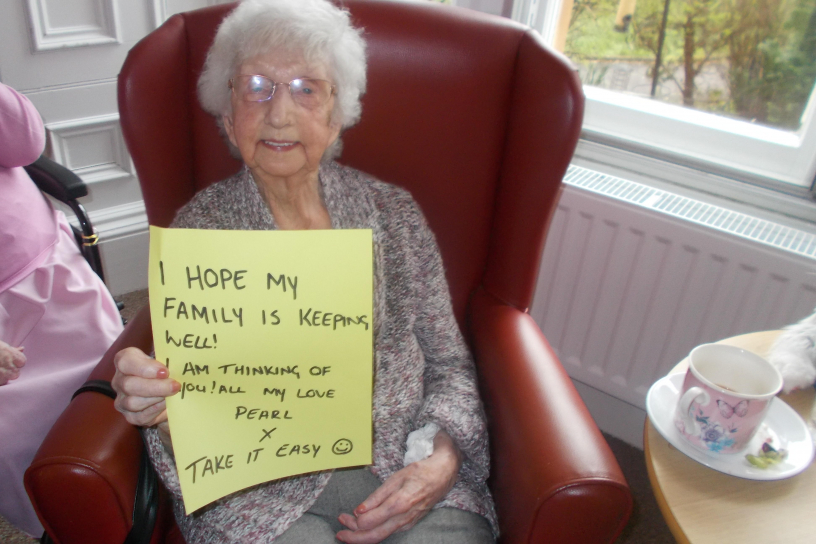 I HOPE MY
FAMILY IS KEEPING
WELL!
I AM THINKING OF
YOU! ALL MY LOVE
PEARL
X
TAKE IT EASY ☺